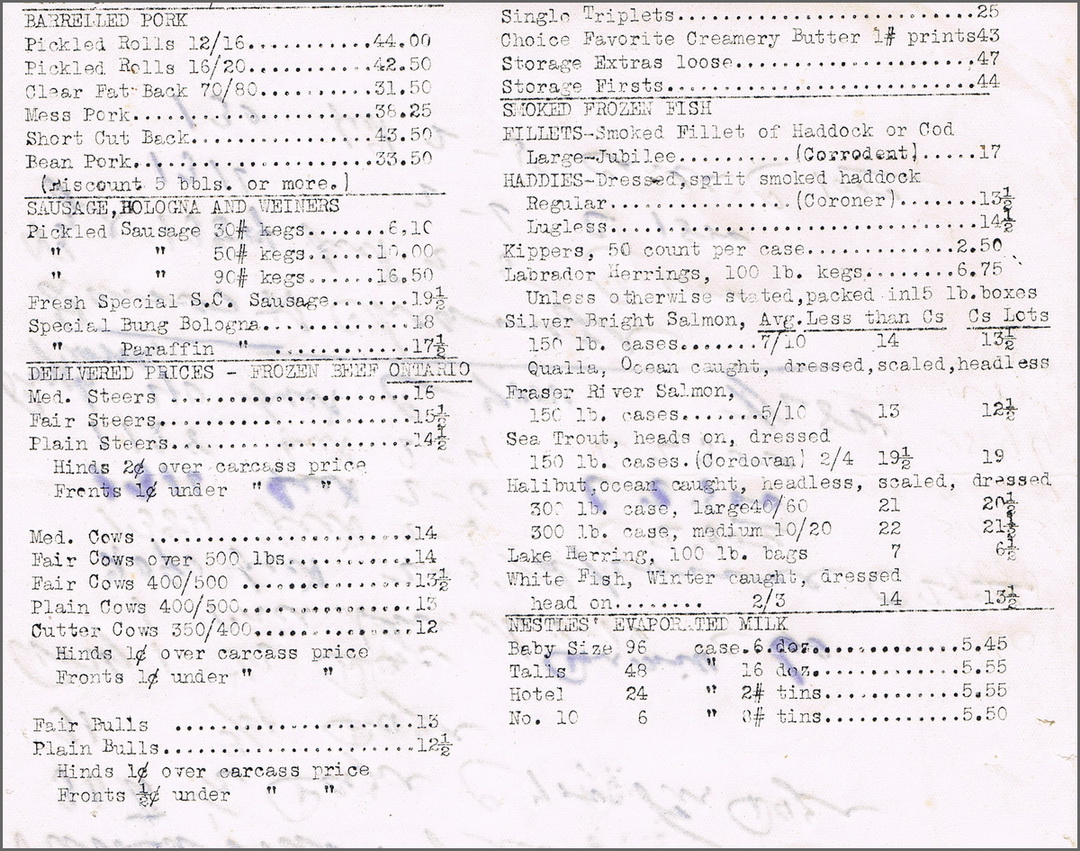 BARRELLED PORK
Pickled Rolls 12/16.............44.00
Pickled Rolls 16/20.............42.50
Clear Fat Back 70/80............31.50
Mess Pork.......................38.25
Short Cut Back..................43.50
Bean Pork.......................33.50
(Discount 5 bbls. or more.)
SAUSAGE,BOLOGNA AND WEINERS
Pickled Sausage 30# kegs........6.10
" " 50# kegs......10.00
" " 90# kegs......16.50
Fresh Special S.C. Sausage.......19½
Special Bung Bologna.............18
" Paraffin " .............17½
DELIVERED PRICES - FROZEN BEEF ONTARIO
Med. Steers .....................16
Fair Steers......................15½
Plain Steers.....................14½
Hinds 2¢ over carcass price
Fronts 1¢ under " "
Med. Cows .......................14
Fair Cows over 500 lbs...........14
Fair Cows 400/500 ...............13½
Plain Cows 400/500...............13
Cutter Cows 350/400..............12
Hinds 1¢ over carcass price
Fronts 1¢ under " "
Fair Bulls ......................13
Plain Bulls......................12½
Hinds 1¢ over carcass price
Fronts ½¢ under " "
Single Triplets.........................25
Choice Favorite Creamery Butter 1# prints43
Storage Extras loose....................47
Storage Firsts..........................44
SMOKED FROZEN FISH
FILLETS-Smoked Fillet of Haddock or Cod
Large-Jubilee..........(Corrodent).....17
HADDIES-Dressed,split smoked haddock
Regular................(Coroner).......13½
Lugless................................14½
Kippers, 50 count per case.............2.50
Labrador Herrings, 100 lb. kegs........6.75
Unless otherwise stated,packed in15 lb.boxes
Silver Bright Salmon, Avg.Less than Cs Cs Lots
150 lb. cases.......7/10 14 13½
Qualla, Ocean caught, dressed,scaled,headless
Fraser River Salmon,
150 lb. cases.......5/10 13 12½
Sea Trout, heads on, dressed
150 lb. cases.(Cordovan) 2/4 19½ 19
Halibut,ocean caught, headless, scaled, dressed
300 lb. case, large40/60 21 20½
300 lb. case, medium 10/20 22 21½
Lake Herring, 100 lb. bags 7 6½
White Fish, Winter caught, dressed
head on........ 2/3 14 13½
NESTLES' EVAPORATED MILK
Baby Size 96 case.6.doz..............5.45
Talls 48 " 16 doz.............5.55
Hotel 24 " 2# tins............5.55
No. 10 6 " # tins............5.50